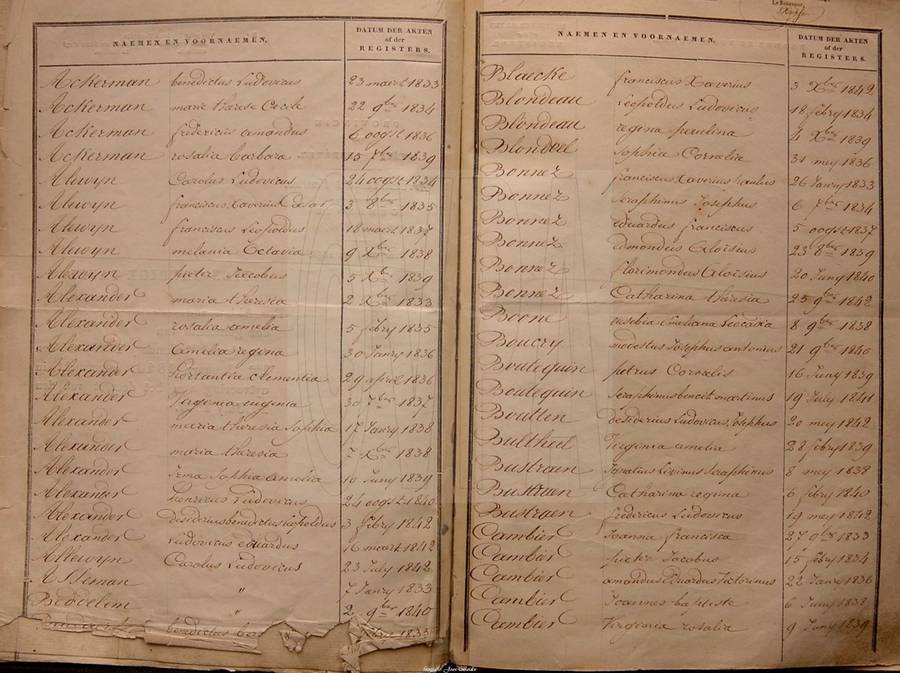 NAEMEN EN VOORNAEMEN.
DATUM DER AKTEN
of der
REGISTERS.
Ackerman benedictus Ludovicus 23 maert 1833
Ackerman marie therese Cecile 22 9bre 1834
Ackerman fredericus amandus 6 oogst 1836
Ackerman rosalia barbara 15 7bre 1839
Alewyn Carolus Ludovicus 24 oogst 1834
Alewyn franciscus Xaverius 3 8bre 1835
Alewyn franciscus Leopoldus 18 maert 1837
Alewyn melania Octavia 9 Xbre 1838
Alewyn pieter Jacobus 5 Xbre 1839
Alexander maria theresia 2 Xbre 1833
Alexander rosalia amelia 5 febry 1835
Alexander amelia regina 30 Janry 1836
Alexander hortantia clementia 29 april 1836
Alexander Virginia eugenia 30 7bre 1837
Alexander maria theresia Sophia 17 Janry 1838
Alexander maria theresia 7 Xbre 1838
Alexander Irma Sophia amelia 10 Juny 1839
Alexander henricus Ludovicus 24 oogst 1840
Alexander desiderius benedictus Leopoldus 3 febry 1842
Alexander Ludovicus eduardus 16 maert 1842
Allewyn Carolus Ludovicus 23 July 1842
" 7 Janry 1833
Beddelem " 2 9bre 1840
benedictus 1835
NAEMEN EN VOORNAEMEN.
DATUM DER AKTEN
of der
REGISTERS.
Blaecke franciscus Xaverius 3 Xbre 1842
Blondeau Leopoldus Ludovicus 18 febry 1834
Blondeau regina paulina 4 Xbre 1839
Blondeel Sophia Cornelia 31 mey 1836
Bonnez franciscus Xaverius 26 Janry 1833
Bonnez Seraphinus Josephus 6 7bre 1834
Bonnez eduardus franciscus 5 oogst 1837
Bonnez edmondus Aloïsius 23 8bre 1839
Bonnez florimondus Aloïsius 20 Juny 1840
Bonnez Catharina theresia 25 9bre 1842
Boone eusebia Leocadia 8 9bre 1838
Boucry modestus Josephus antonius 21 9bre 1840
Boutequin petrus Cornelis 16 Juny 1839
Boutequin Seraphinus benoit martinus 19 July 1841
Boutten desiderius Ludovicus Josephus 20 mey 1842
Bultheel Virginia amelia 28 febry 1839
Bustraen Ignatus Livinus Seraphinus 8 mey 1838
Bustraen Catharina regina 6 febry 1840
Bustraen fredericus Ludovicus 19 mey 1842
Cambier Joanna francisca 27 1833
Cambier pieter Jacobus 15 febry 1834
Cambier amandus Eduardus Victorinus 22 Janry 1836
Cambier Joannes baptiste 6 Juny 1838
Cambier Virginia rosalia 9 Juny 1839